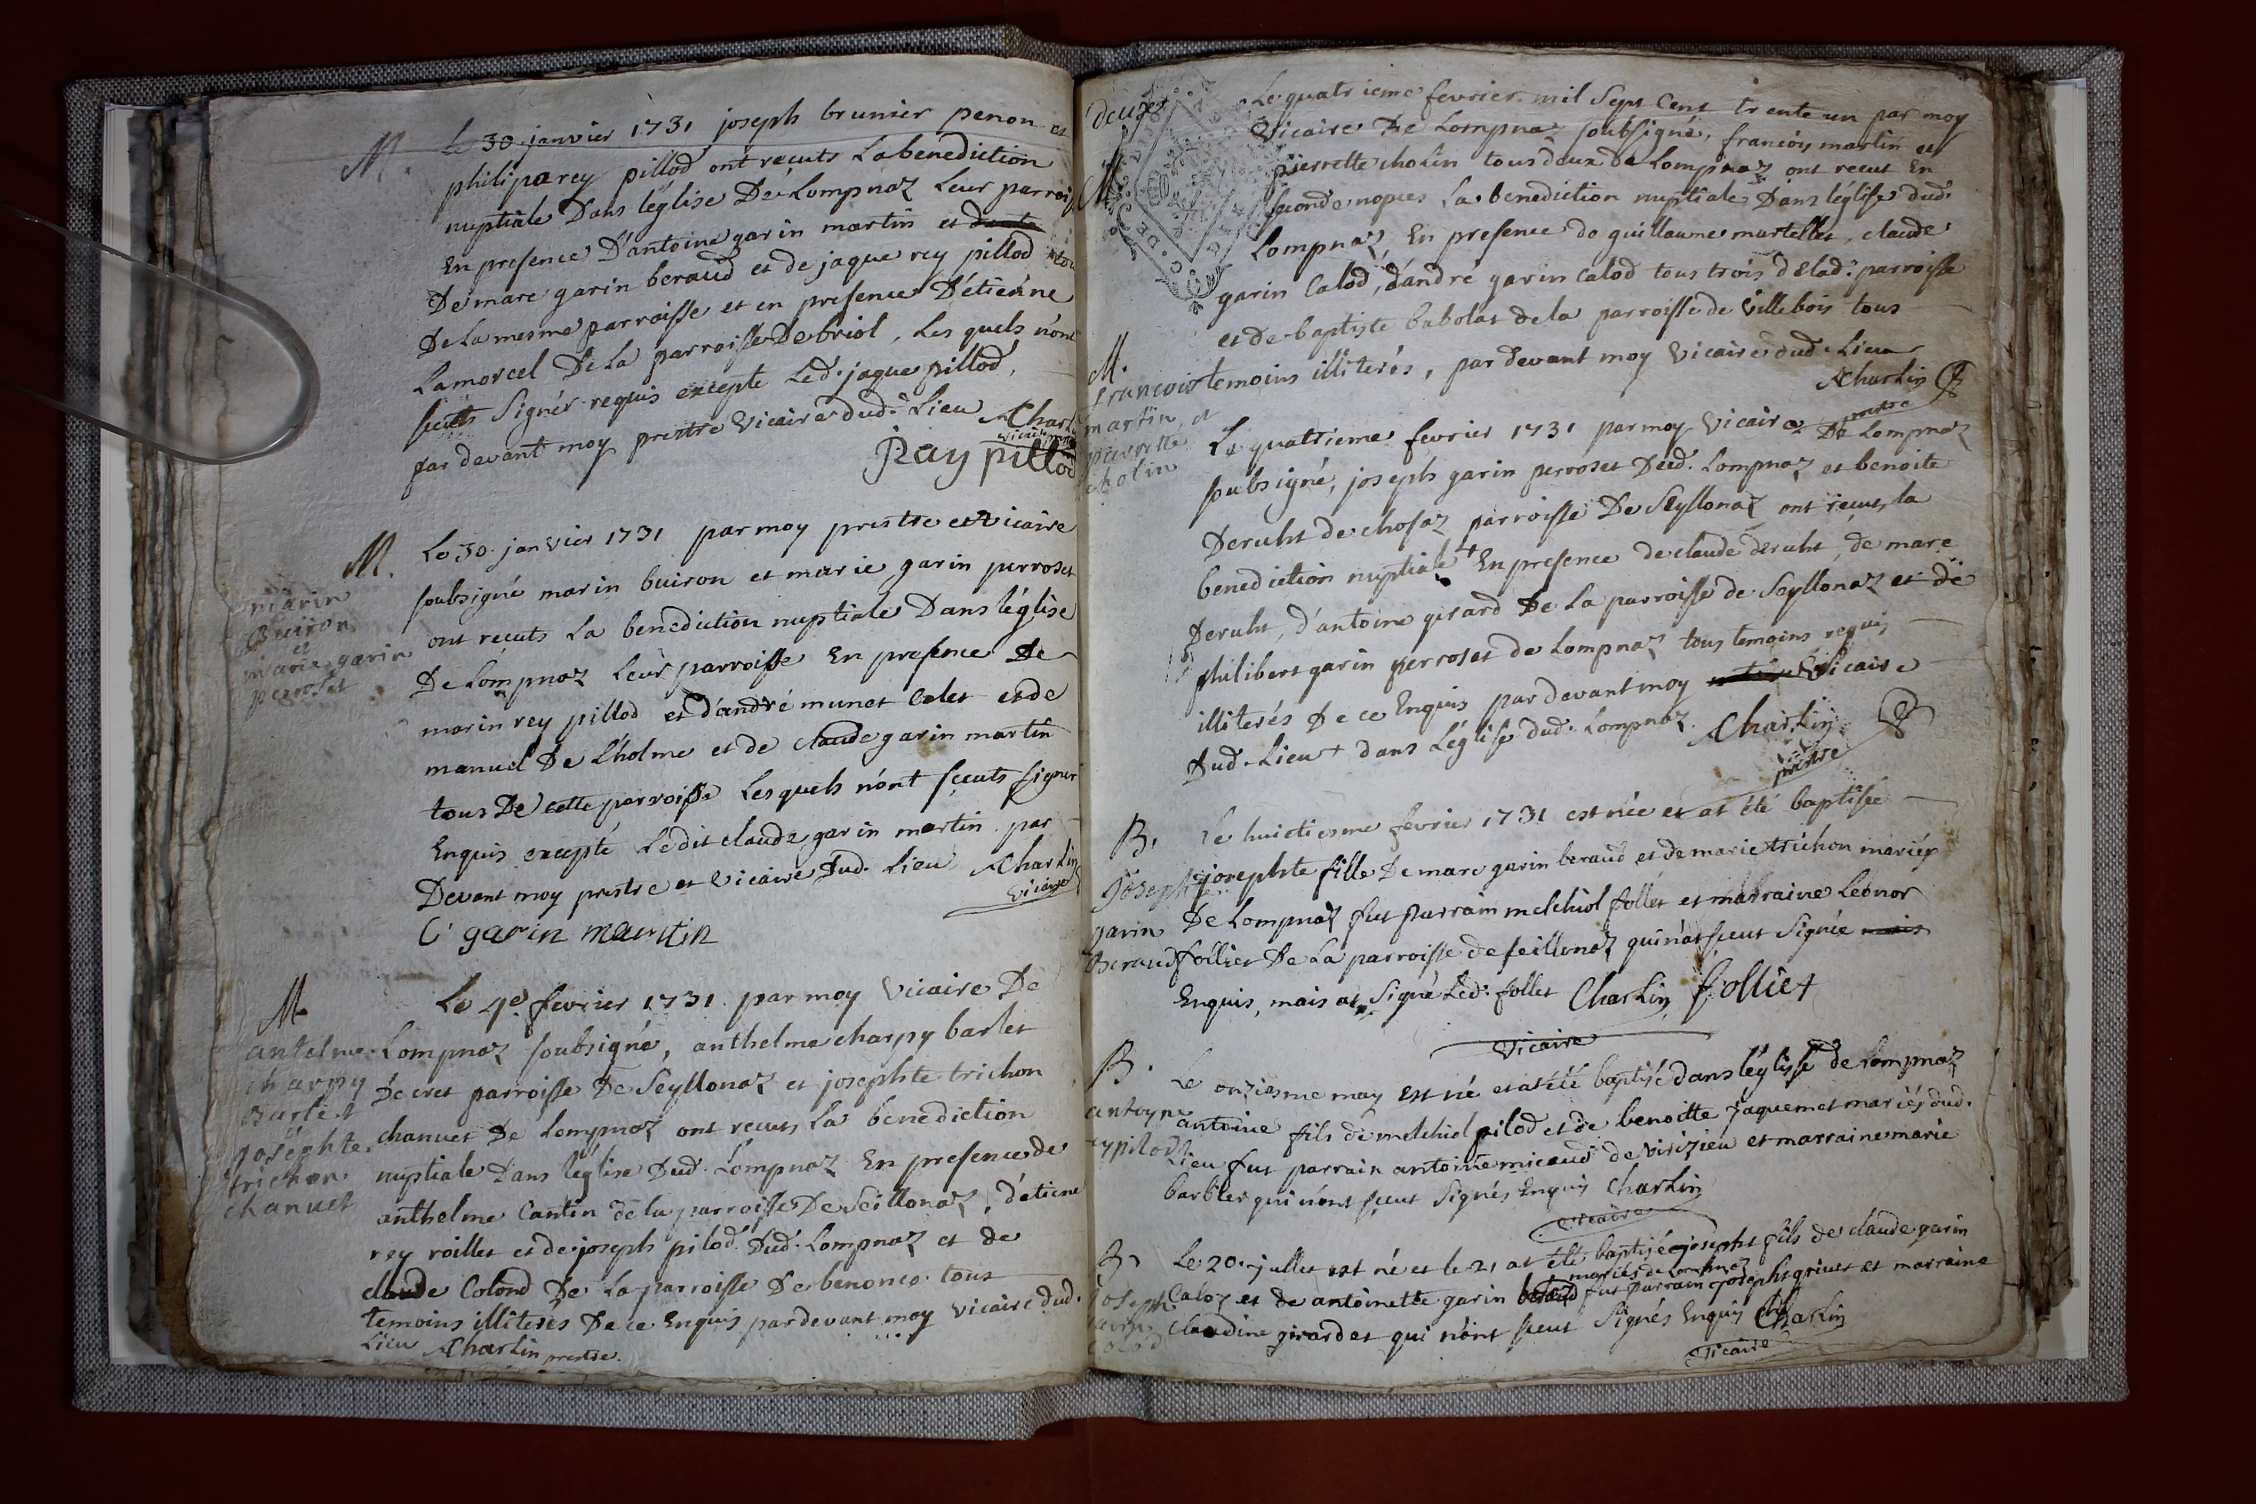 M.
le 30 janvier 1731 joseph brunier penon et
philipa rey pillod ont recuts la benediction
nuptiale Dans l'église De Lompnaz Leur parroisse
En presence D'antoine garin martin et
De marc garin beraud et de jaque rey pillod tous
De la mesme parroisse et en presence D'étienne
Lamorcel De la parroisse De briol, Les quels n'ont
sceuts signér requis excepte Led. jaque pillod,
par devant moy prestre vicaire dud. Lieu
ACharlin
vicaire
Ray pillod
M.
marin
Buiron
et
marie garin
perroset
Le 30 janvier 1731 par moy prestre et vicaire
soubsigné marin buiron et marie garin perroset
ont recuts la benediction nuptiale Dans l'église
De Lompnaz Leur parroisse En presence De
marin rey pillod et d'andré munet Colet et de
manuel De L'holme et de claude garin martin
tous De cette parroisse Lesquels n'ont sceuts signer
Enquis excepté Ledit claude garin martin par
Devant moy prestre et vicaire Dud. Lieu ACharlin
vicaire
C garin martin
M.
antelme
charpy
Barlet
josephte
trichon
chanuet
Le 4e fevrier 1731 par moy vicaire De
Lompnaz soubsigné, anthelme charpy barlet
De cret parroisse De Seyllonaz et josephte trichon
chanuet De Lompnaz ont recuts la benediction
nuptiale Dans l'église Dud. Lompnaz En presence de
anthelme Cantin de la parroisse De Seillonaz, d'étiene
rey roillet et de joseph pilod Dud. Lompnaz et de
claude Colond De La parroisse De benonce tous
temoins illiterés De ce Enquis par devant moy vicaire dud.
Lieu ACharlin prestre.
deux
M
Le quatrieme fevrier mil Sept Cent trente un par moy
vicaire De Lompnaz soubsigné, francois martin et
pierrette cholin tous deux de Lompnaz ont recut En
seconde nopces La benediction nuptiale Dans l'église dud.
Lompnaz, En presence de guillaume martellet, claude
garin Calod, d'andré garin Calod tous trois de lad. parroisse
et de baptiste babolat de la parroisse de villebois tous
temoins illiterés, par devant moy vicaire dud. Lieu
ACharlin
prestre
M.
francois
martin et
pierrette
cholin
Le quatrieme fevrier 1731 par moy vicaire De Lompnaz
soubsigné, joseph garin perroset Dud. Lompnaz et benoite
Deruht de chosaz parroisse De Seyllonaz ont recuts la
benediction nuptiale + En presence de claude deruht, de marc
Deruht, d'antoine girard De la parroisse de Seyllonaz et de
philibert garin perroset de Lompnaz tous temoins requis
illiterés De ce Enquis par devant moy vicaire
dud. Lieu + dans L'église dud. Lompnaz. ACharlin
prestre
B.
josephte
garin
Beraud
Le huictiesme fevrier 1731 est née et at été baptisée
josephte fille De marc garin beraud et de marie trichon mariés
De Lompnaz fut parrain melchiol follet et marraine Leonor
follier De La parroisse de seillonaz qui n'at sceut Signée
Enquis, mais at Signé Led. follet Charlin folliet
vicaire
B.
antoyne
rey pilod
Le onziesme may Est né et at été baptisé dans l'église de Lompnaz
antoine fils de melchiol pilod et de benoitte jaquemet mariés dud.
Lieu fut parrain antoine micaud de virizieu et marraine marie
barbier qui n'ont sceut Signés Enquis Charlin
vicaire
B.
joseph
garin
Calod
Le 20 jullet est né et le 21 at été baptisé joseph fils de claude garin
mariés de Lompnaz
Caloz et de antoinette garin beraud fut parrain joseph griuet et marraine
claudine girardet qui n'ont sceut Signés Enquis Charlin
vicaire